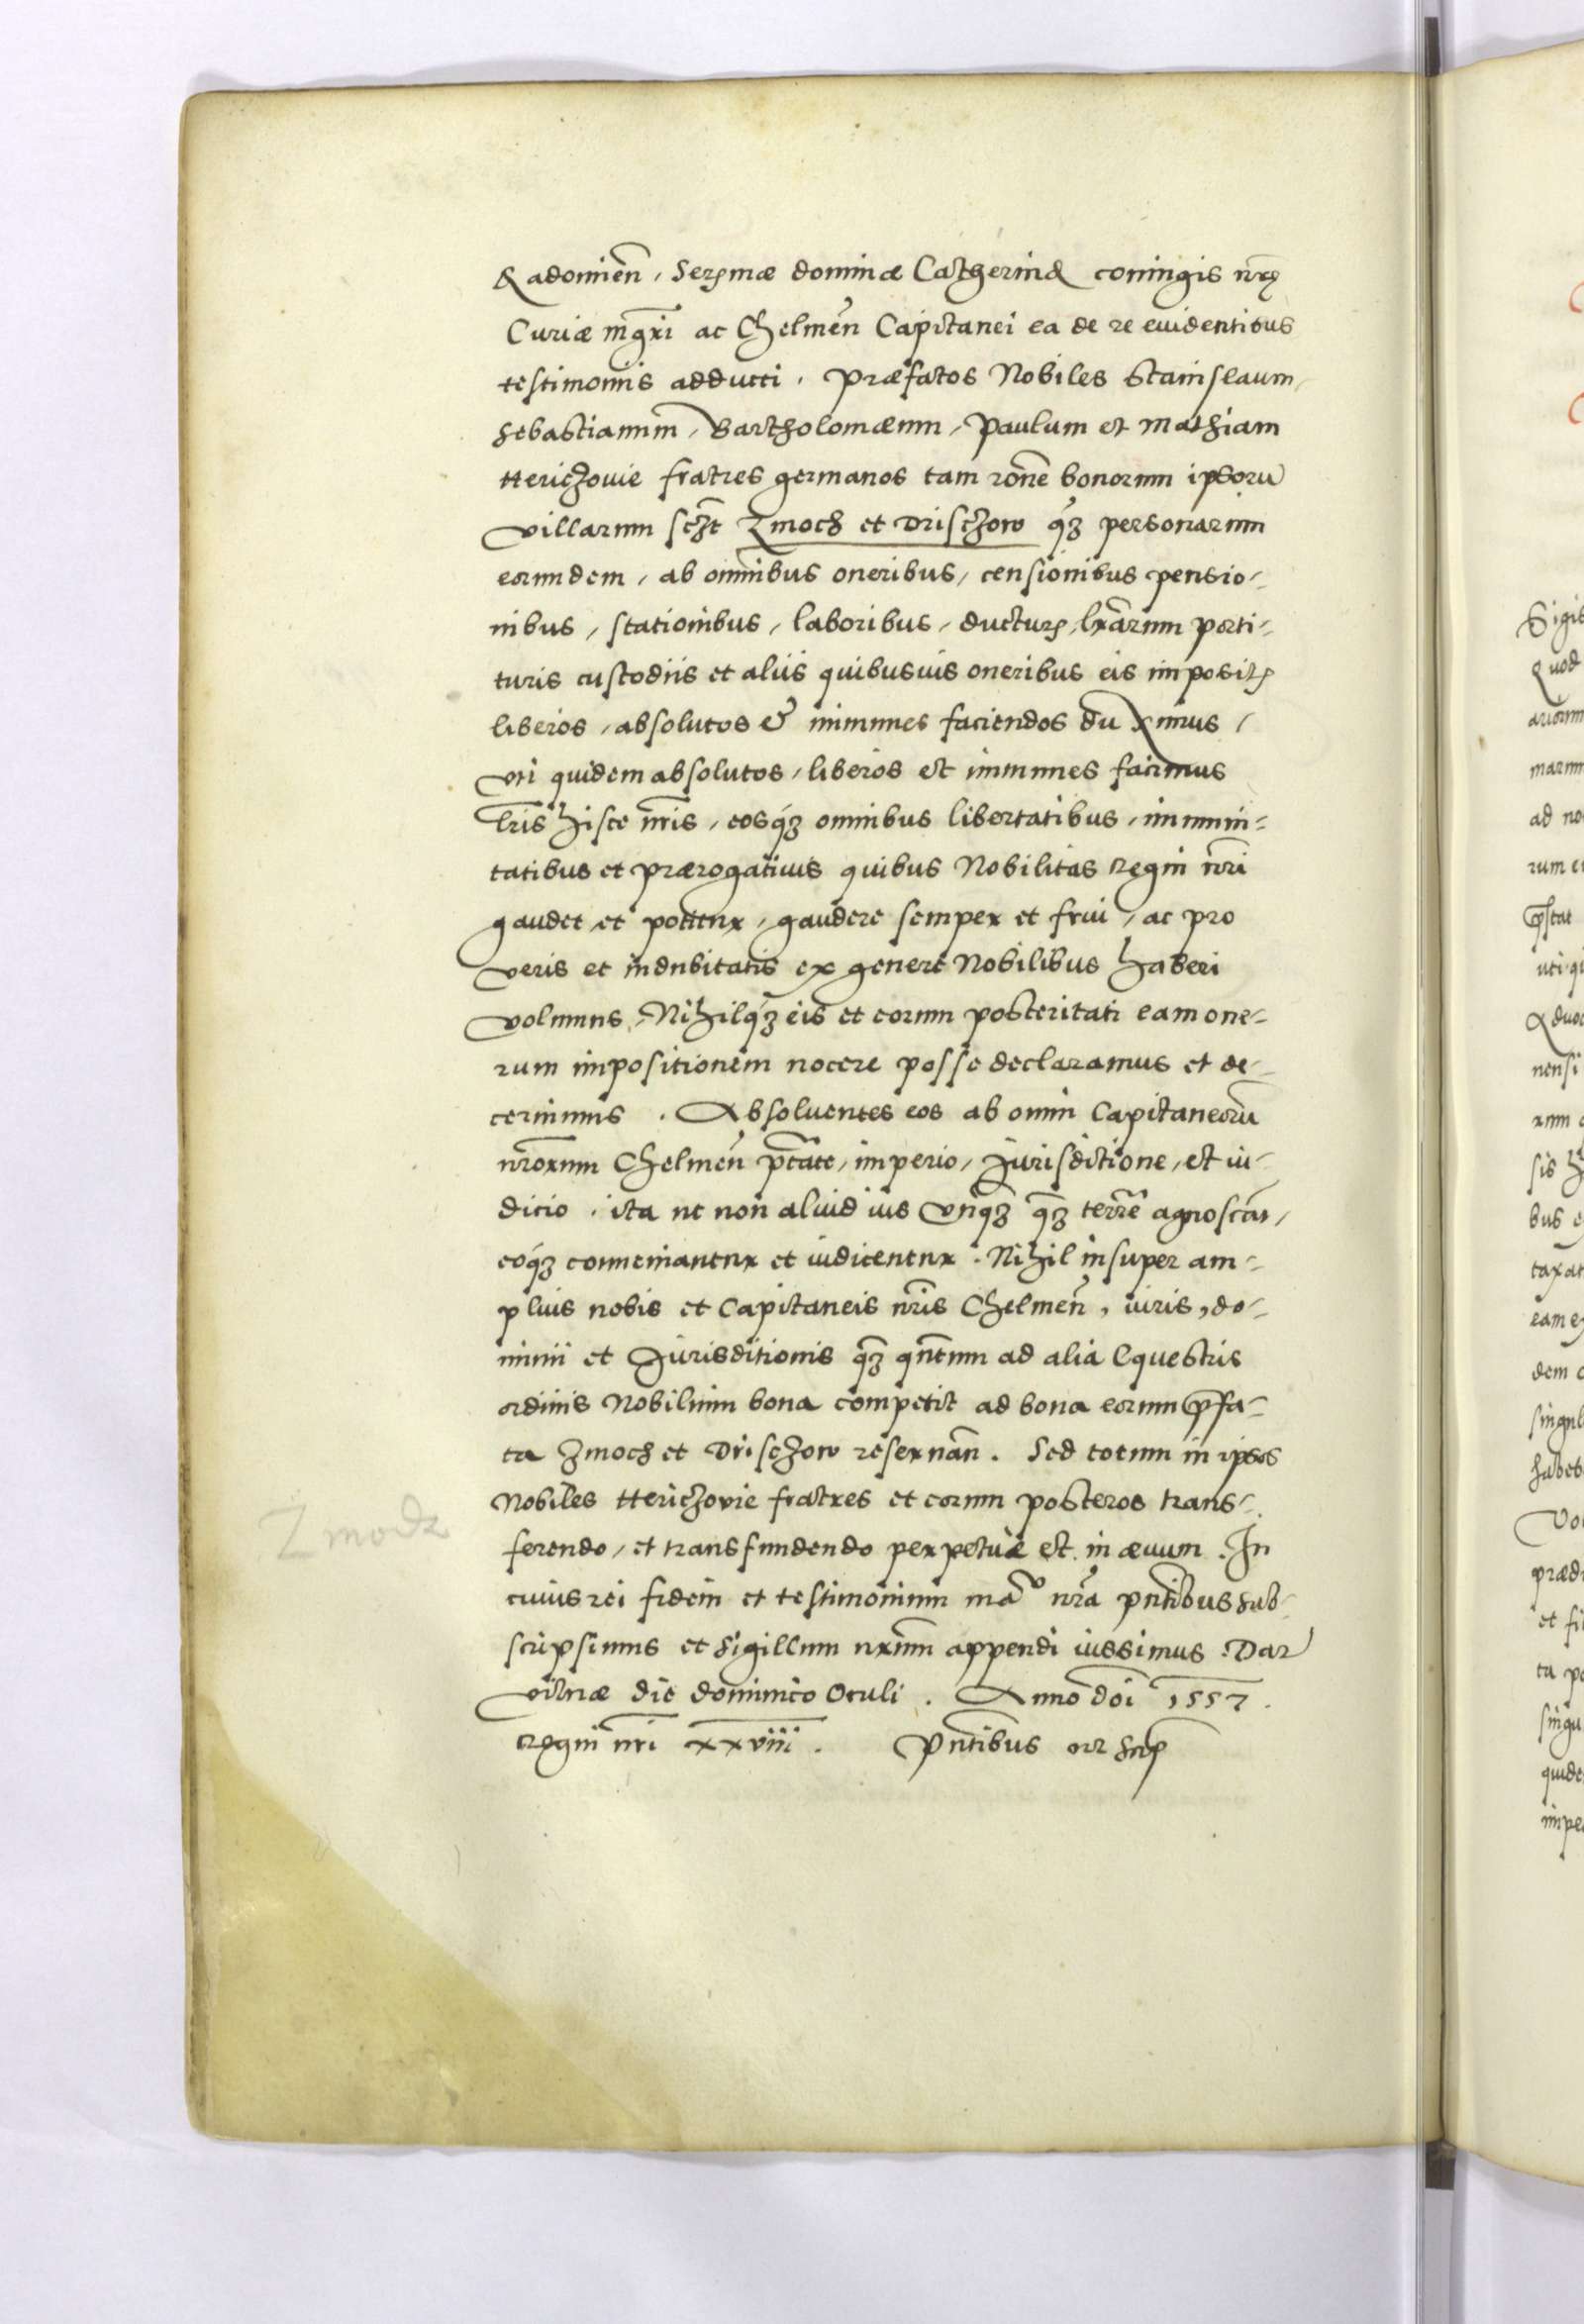 Radomien̄, Serꝫmæ dominæ Catherinæ coniugis nr̄ę
Curiæ mgr̄i ac Chelmen̄ Capitanei ea de re euidentibus
testimoniis adducti. Præfatos Nobiles Stanislaum,
Sebastianum, Bartholomæum, Paulum et Mathiam
Hericzouie fratres germanos tam rōne bonorum ipsorū
villarum scꝫt Zmoch et Drisczow q̄ꝫ personarum
eorumdem, ab omnibus oneribus, censionibus pensio-
nibus, stationibus, laboribus, ducturꝭ, lr̄arum porti-
turis custodiis et aliis quibusuis oneribus eis impositꝭ
liberos, absolutos & immunes faciendos duximus,
vti quidem absolutos, liberos et immunes facimus
Lr̄is hisce nr̄is, eosqꝫ omnibus libertatibus, immuni-
tatibus et prærogatiuis quibus Nobilitas Regni nr̄i
gaudet et potitur, gaudere semper et frui, ac pro
veris et indubitatis ex genere Nobilibus haberi
volumus, Nihilqꝫ eis et eorum posteritati eam one-
rum impositionem nocere posse declaramus et de-
cernimus. Absoluentes eos ab omni Capitaneorū
nr̄orum Chelmen̄ ptāte, imperio, Jurisditione, et iu-
dicio. ita ne non aliud ius vnq̄ꝫ q̄ꝫ terrrē agnoscāt,
eoqꝫ conueniantur et iudicentur. Nihil insuper am-
plius nobis et Capitaneis nr̄is Chelmen̄, iuris, do-
minii et Jurisditionis q̄ꝫ qn̄tum ad alia Equestris
ordinis Nobilium bona competit ad bona eorum p̄fa-
ta Zmoch et Drisczow reseruan̄. Sed totum in ipsos
Nobiles Hericzovie fratres et eorum posteros trans-
ferendo, et transfundendo perpetuæ et in æuum. In
cuius rei fidem et testimonium māo nr̄a pn̄tibus sub-
scripsimus et Sigillum nr̄um appendi iussimus. Dat
vilnæ die dominico Oculi. Anno dōi 1557.
Regni nr̄i xxviii. Pn̄tibus
Zmodz